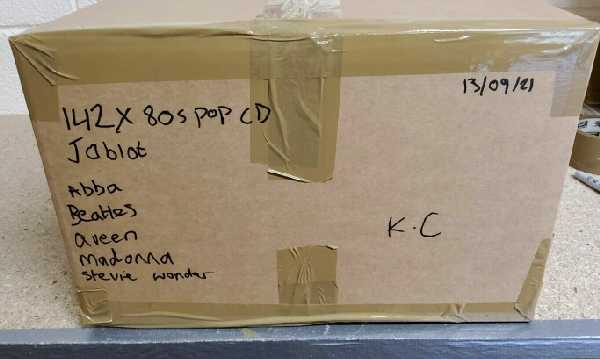 13/09/21
142X 80s POP CD
Joblot
Abba
Beatles
Queen
Madonna
Stevie wonder
K.C